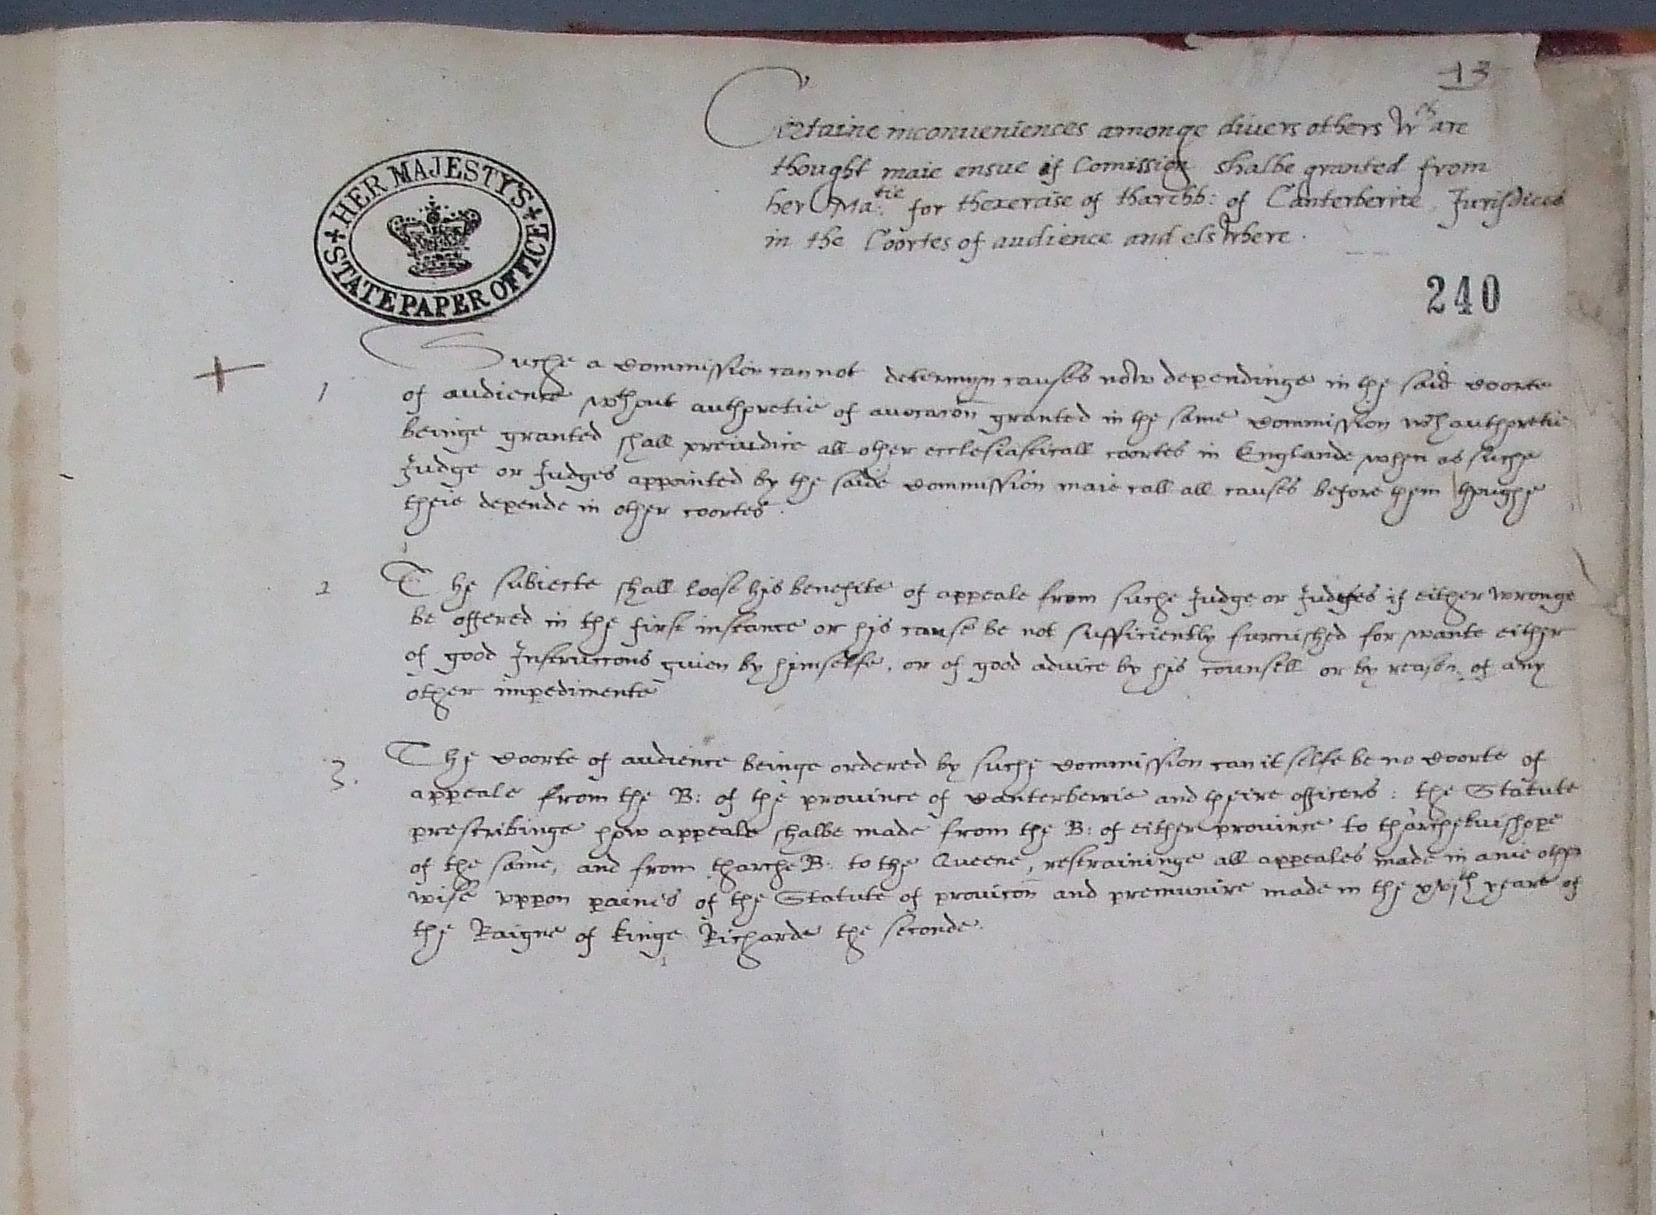 13
Certaine inconveniences amonge divers others wch are
thought maie ensue if Comission shalbe granted from
her Matie for thexercise of tharchb: of Canterberrie Jurisdiccō
in the Coortes of audience and elswhere.
HER MAJESTYS
STATE PAPER OFFICE
240
+
1 Suche a Commission can not determyn causes now dependinge in the said Coorte
of audience wthout authoretie of avocacōn granted in the same Commission wch authoretie
beinge granted shall preiudice all other ecclesiasticall coortes in Englande when as suche
Judge or Judges appointed by the saide Commission maie call all causes before them thoughe
theie depende in other coortes.
2 The subiecte shall loose his benefite of appeale from suche Judge or Judges if either wronge
be offered in the first instance or his cause be not sufficiently furnished for wante either
of good Instruccons given by himselfe, or of good advice by his counsell or by reason of any
other impedimente
3. The Coorte of audience beinge ordered by suche Commission can it selfe be no Coorte of
appeale from the B: of the province of Canterberrie and theire officers: the Statute
prescribinge how appeale shalbe made from the B: of either province to tharchebusshope
of the same, and from tharche B: to the Queene, restraininge all appeales made in anie other
wise uppon paines of the Statute of provicōn and premunire made in the xvjth yeare of
the Raigne of kinge Richarde the seconde.